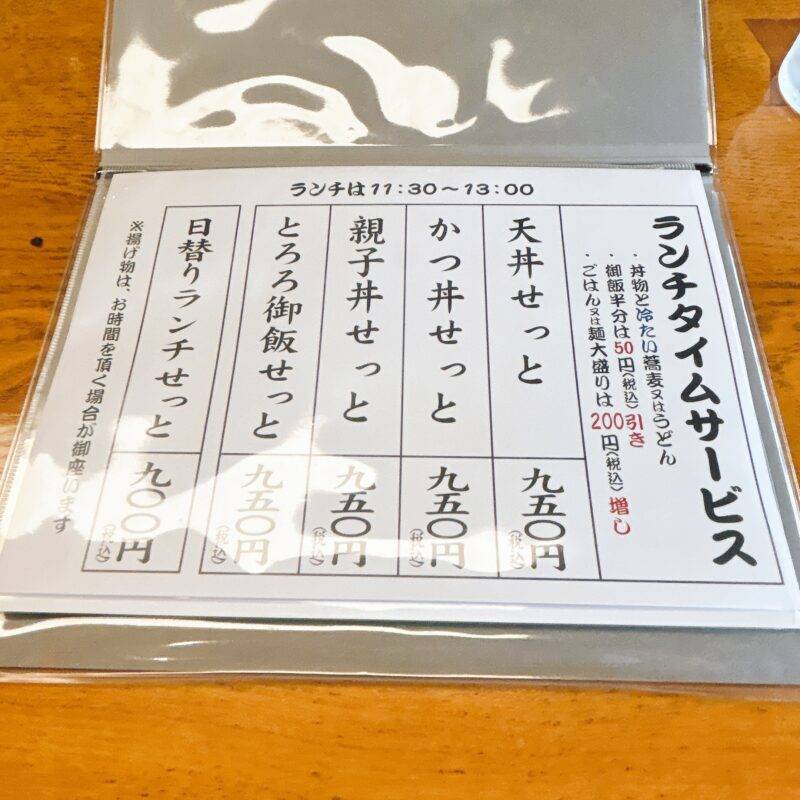 ランチは11:30～13:00
ランチタイムサービス
・丼物と冷たい蕎麦又はうどん
・御飯半分は50円(税込)引き
・ごはん又は麺大盛りは200円(税込)増し
天丼せっと 九五〇円(税込)
かつ丼せっと 九五〇円(税込)
親子丼せっと 九五〇円(税込)
とろろ御飯せっと 九五〇円(税込)
日替りランチせっと 九〇〇円(税込)
※揚げ物は、お時間を頂く場合が御座います